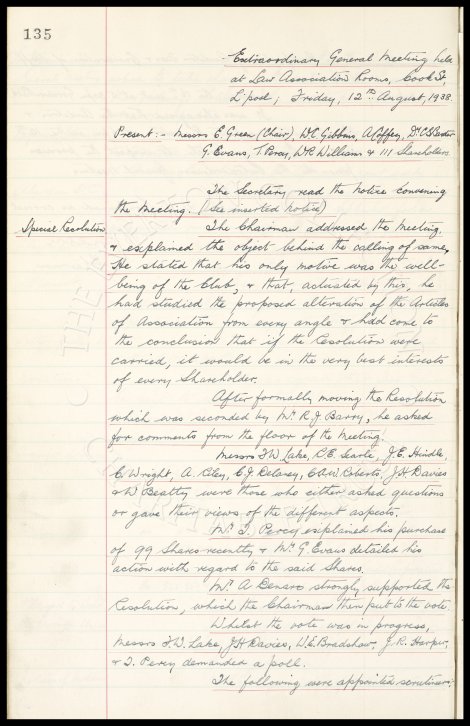 135
Extraordinary General Meeting held
at Law Association Rooms, Cook St
L'pool, Friday, 12th August, 1938.
Present:- Messrs E. Green (Chair), W.C. Gibbins, A Coffey, Dr C.S. Baxter
G. Evans, T. Percy, W.R. Williams & 111 Shareholders.
The Secretary read the notice convening
the meeting. (See inserted notice)
Special Resolution
The Chairman addressed the meeting,
& explained the object behind the calling of same.
He stated that his only motive was the well-
being of the Club, & that, actuated by this, he
had studied the proposed alteration of the Articles
of Association from every angle & had come to
the conclusion that if the Resolution were
carried, it would be in the very best interests
of every Shareholder.
After formally moving the Resolution
which was seconded by Mr. R J Barry, he asked
for comments from the floor of the Meeting.
Messrs F.W. Lake, C.E. Searle, J.E. Hindle,
C. Wright, A. Riley, E J Delaney, C.A.W. Roberts, J.H Davies
& W Beatty were those who either asked questions
or gave their views of the different aspects.
Mr. T. Percy explained his purchase
of 99 Shares recently, & Mr. G Evans detailed his
action with regard to the said Shares.
Mr. A Denaro strongly supported the
Resolution, which the Chairman then put to the vote.
Whilst the vote was in progress,
Messrs F.W. Lake, J.H Davies, W.E. Bradshaw, J.R. Harper,
& T. Percy demanded a poll.
The following were appointed scrutineers: